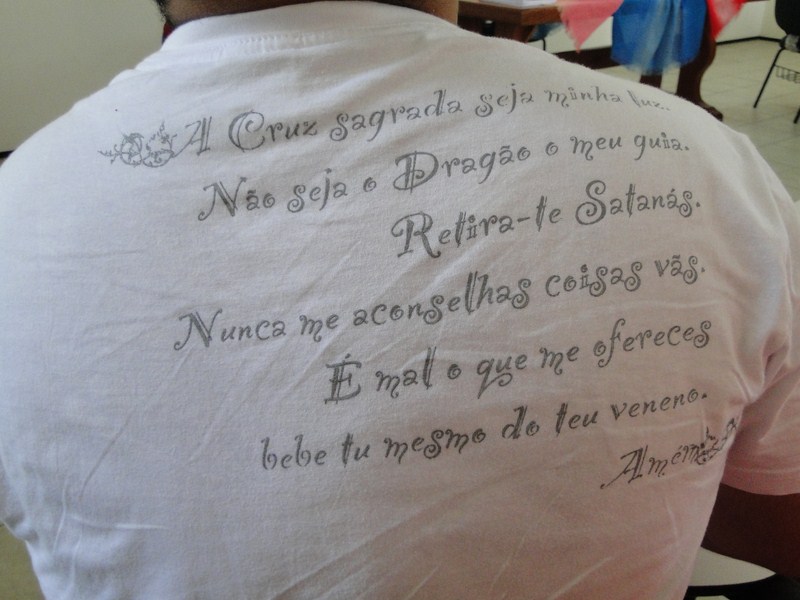 A Cruz sagrada seja minha luz..
Não seja o Dragão o meu guia.
Retira-te Satanás.
Nunca me aconselhas coisas vãs.
É mal o que me ofereces
bebe tu mesmo do teu veneno.
Amém